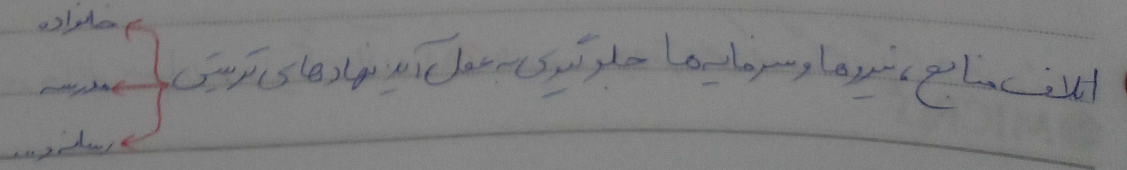 اتلاف منابع، نیروها و سرمایه‌ها جلوگیری به عمل آید نهادهای تربیتی
خانواده
مدرسه
رسانه و...